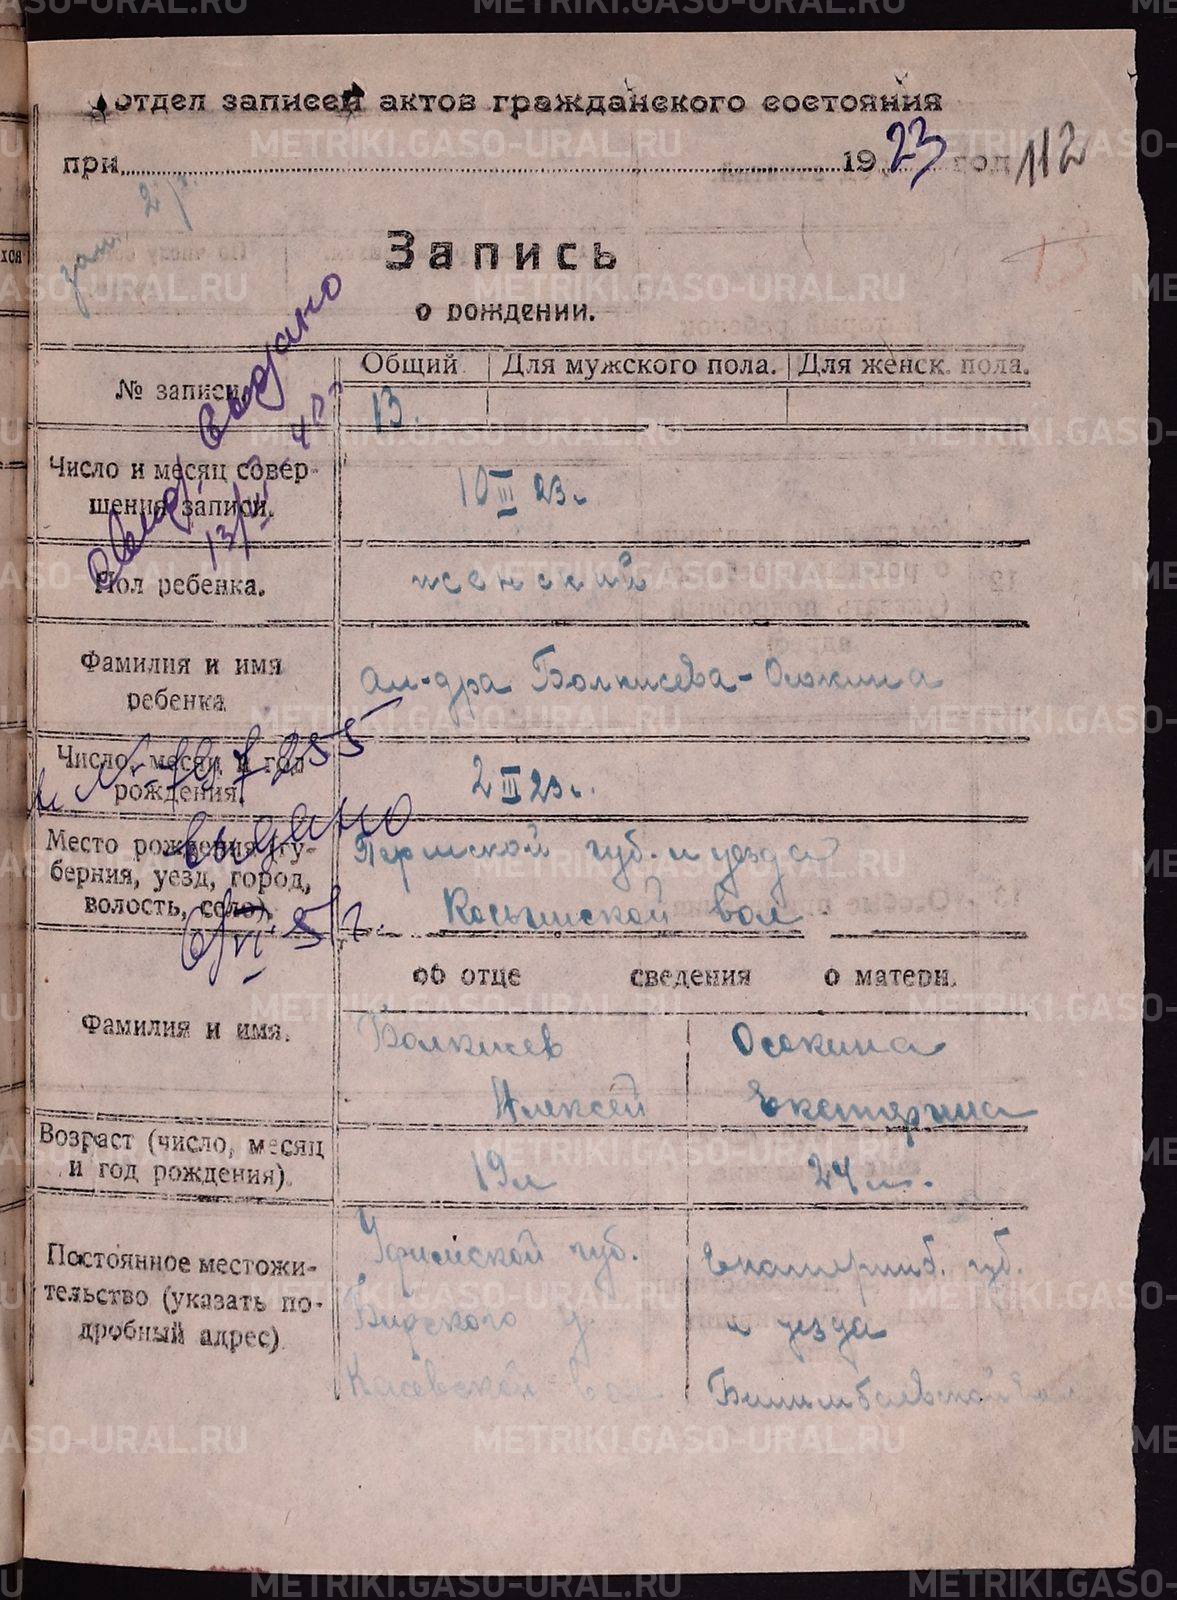 отдел записей актов гражданского состояния
при 1923 год 112
зап. 2 р.
13
Запись
о рождении.
№ записи.
Общий Для мужского пола. Для женск. пола.
13.
Число и месяц совершения записи.
10 III 23 г.
Пол ребенка.
женский
Фамилия и имя
ребенка
Ал-дра Болкисева-Осокина
Число, месяц и год
рождения.
2 III 23 г.
Место рождения (гу-
берния, уезд, город,
волость, село).
Пермской губ. и уезда
вол
выдано
выдано
об отце сведения о матери.
Фамилия и имя.
Болкисев
Алексей
Осокина
Екатерина
Возраст (число, месяц
и год рождения).
19 л
24 л.
Постоянное местожи-
тельство (указать по-
дробный адрес)
Уфимской губ.
Бирского у.
Касевской вол
Екатеринб. губ.
и уезда
Билимбаевской вол
METRIKI.GASO-URAL.RU